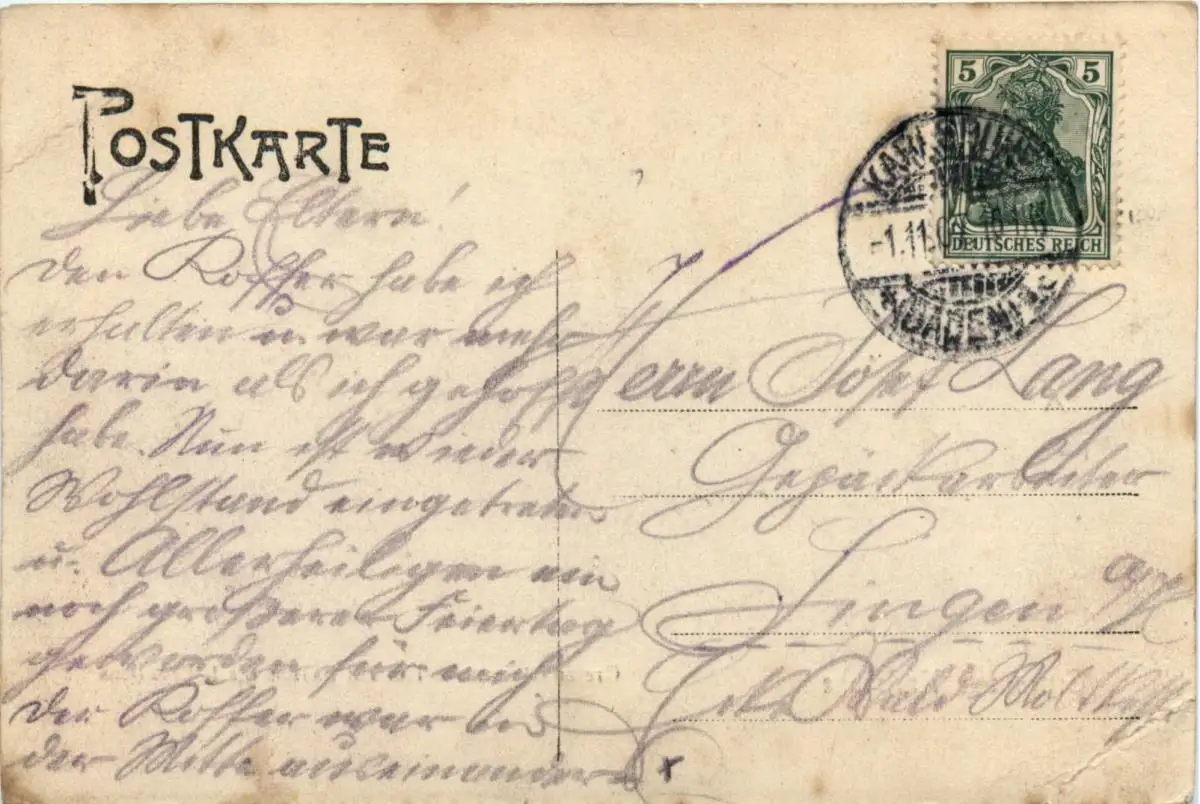 POSTKARTE
5 5
DEUTSCHES REICH
KARLSRUHE
-1.11.0
Liebe Eltern!
den Koffer habe ich
erhalten u. war mehr
darin als ich gehofft
habe. Nun ist wieder
Wohlstand eingetreten
u. Allerheiligen ein
noch größerer Feiertag
geworden für mich
der Koffer war in
der Mitte auseinander
Herrn Josef Lang
Gepäckarbeiter
Singen
Ecke Wald